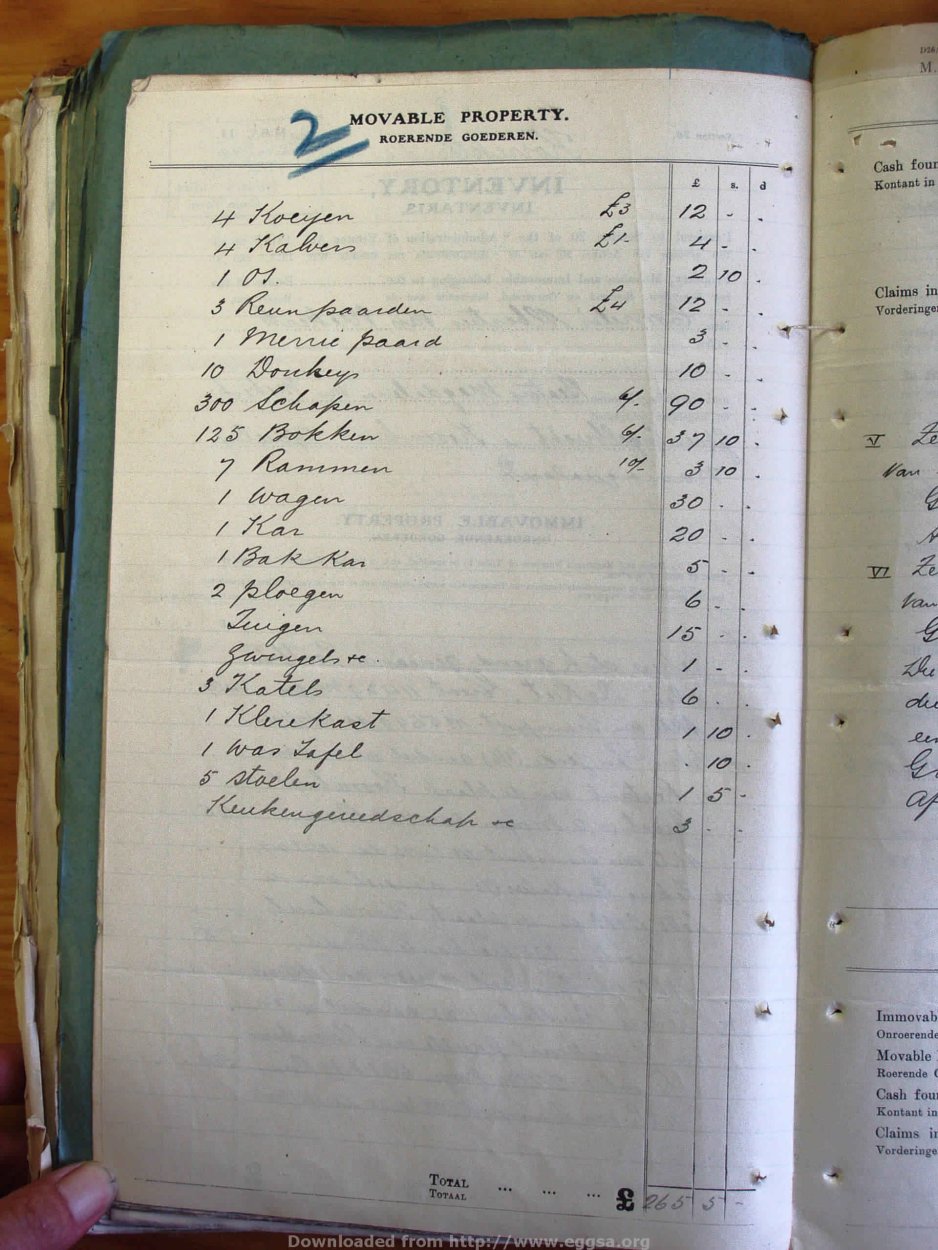 2
MOVABLE PROPERTY.
ROERENDE GOEDEREN.
£ s. d
4 Koeijen £3 12 - .
4 Kalvers £1- 4 - .
1 Os. 2 10 .
3 Reunpaarden £4 12 - .
1 Merrie paard 3 - .
10 Donkeys 10 - -
300 Schapen 6/- 90 - .
125 Bokken 6/- 37 10 .
7 Rammen 10/- 3 10 .
1 Wagen 30 - .
1 Kar 20 - .
1 Bak Kar 5 - -
2 ploegen 6 - .
Tuigen 15 - .
Zwingels &c. 1 - .
3 Katels 6 - .
1 Klerekast 1 10 .
1 Was Tafel . 10 .
5 stoelen 1 5 -
Keukengereedschap &c 3 - -
TOTAL
TOTAAL ... ... ... £ 265 5 -
M.
Cash foun
Kontant in
Claims in
Vorderinge
V Ze
Van
G
VI Ze
Van
G
Die
die
een
Gr
Af
Immovab
Onroerende
Movable
Roerende G
Cash foun
Kontant in
Claims in
Vorderinge
INVENTORY,
INVENTARIS.
IMMOVABLE PROPERTY.
ONROERENDE GOEDEREN.
Downloaded from http://www.eggsa.org